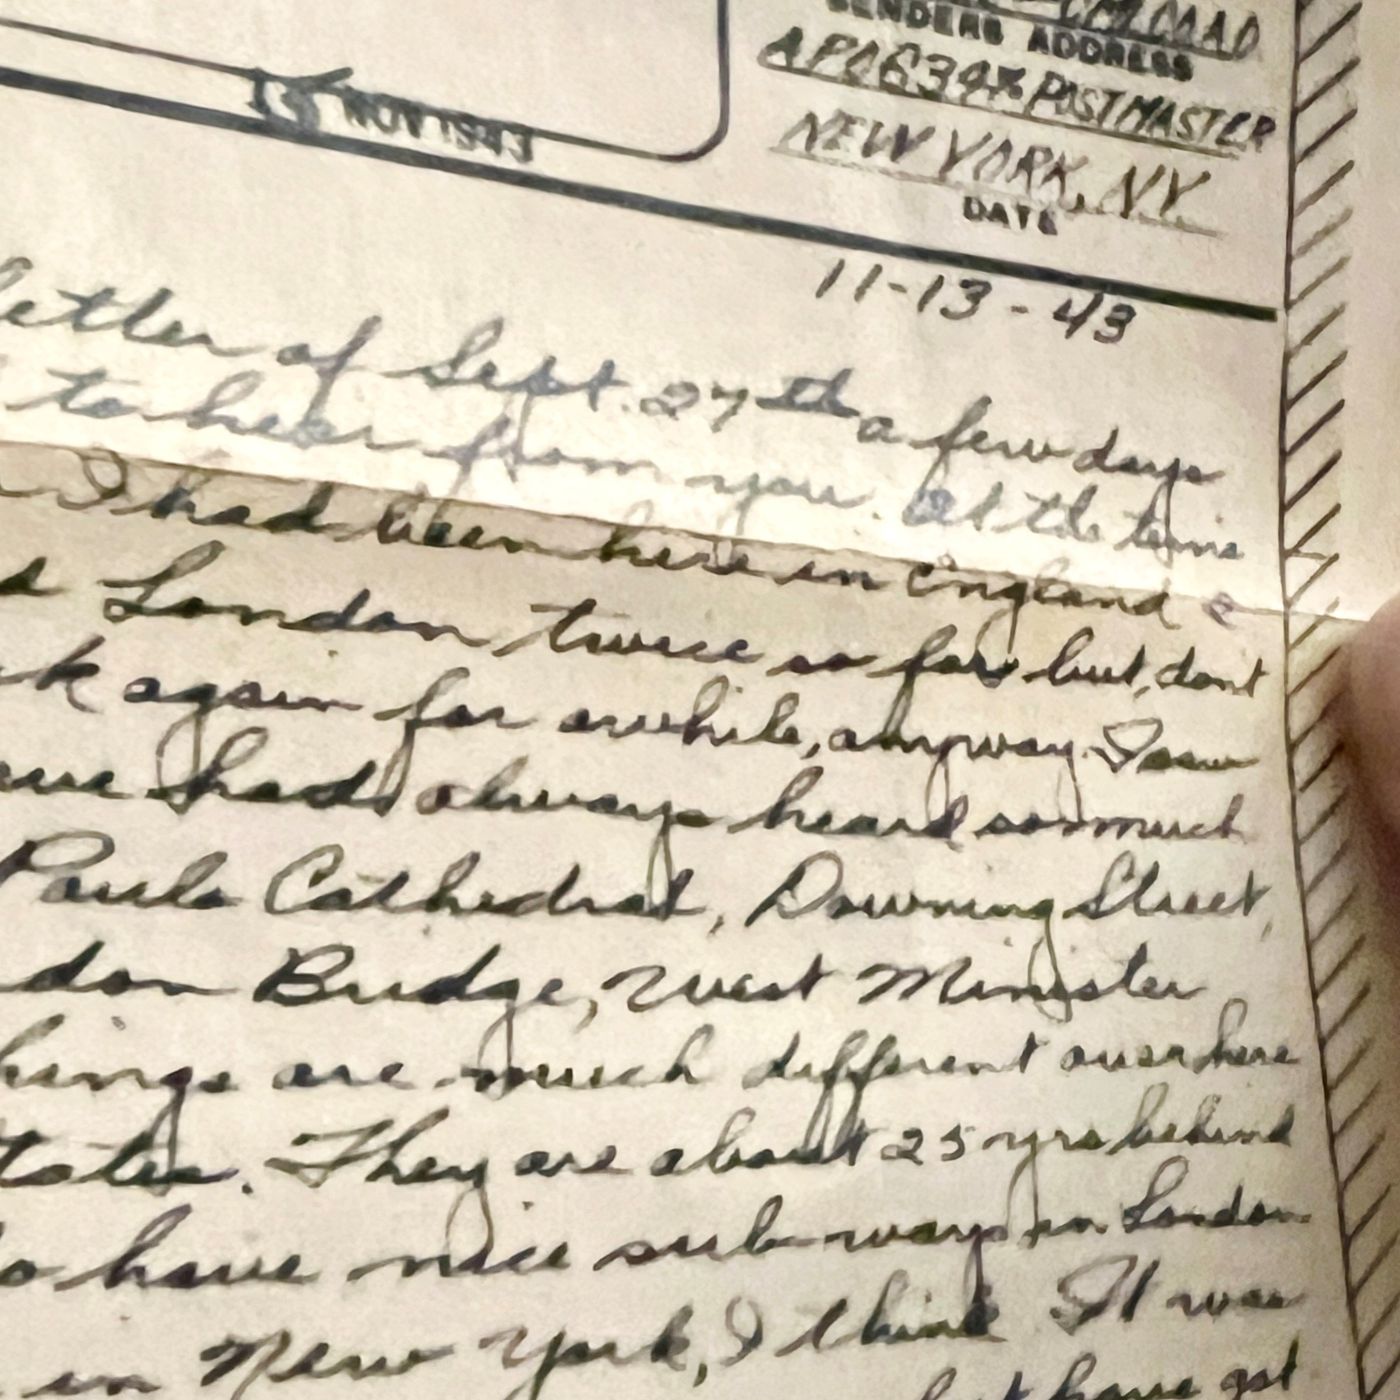 SENDERS ADDRESS
APO634 % POSTMASTER
NEW YORK, NY
NOV 1943
DATE
11-13-43
letter of Sept. 27th a few days
to hear from you. At the time
I had been here in England a
London twice so far but, dont
again for awhile, anyway. I saw
had always heard so much
Pauls Cathedral, Downing Street,
don Bridge, West Minister
hings are much different over here
tates. They are about 25 yrs behind
have nice sub-ways in London
in New York, I think. It was
have got